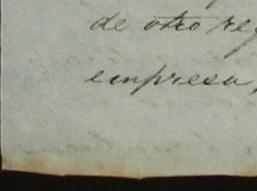 de otro reg
empresa,